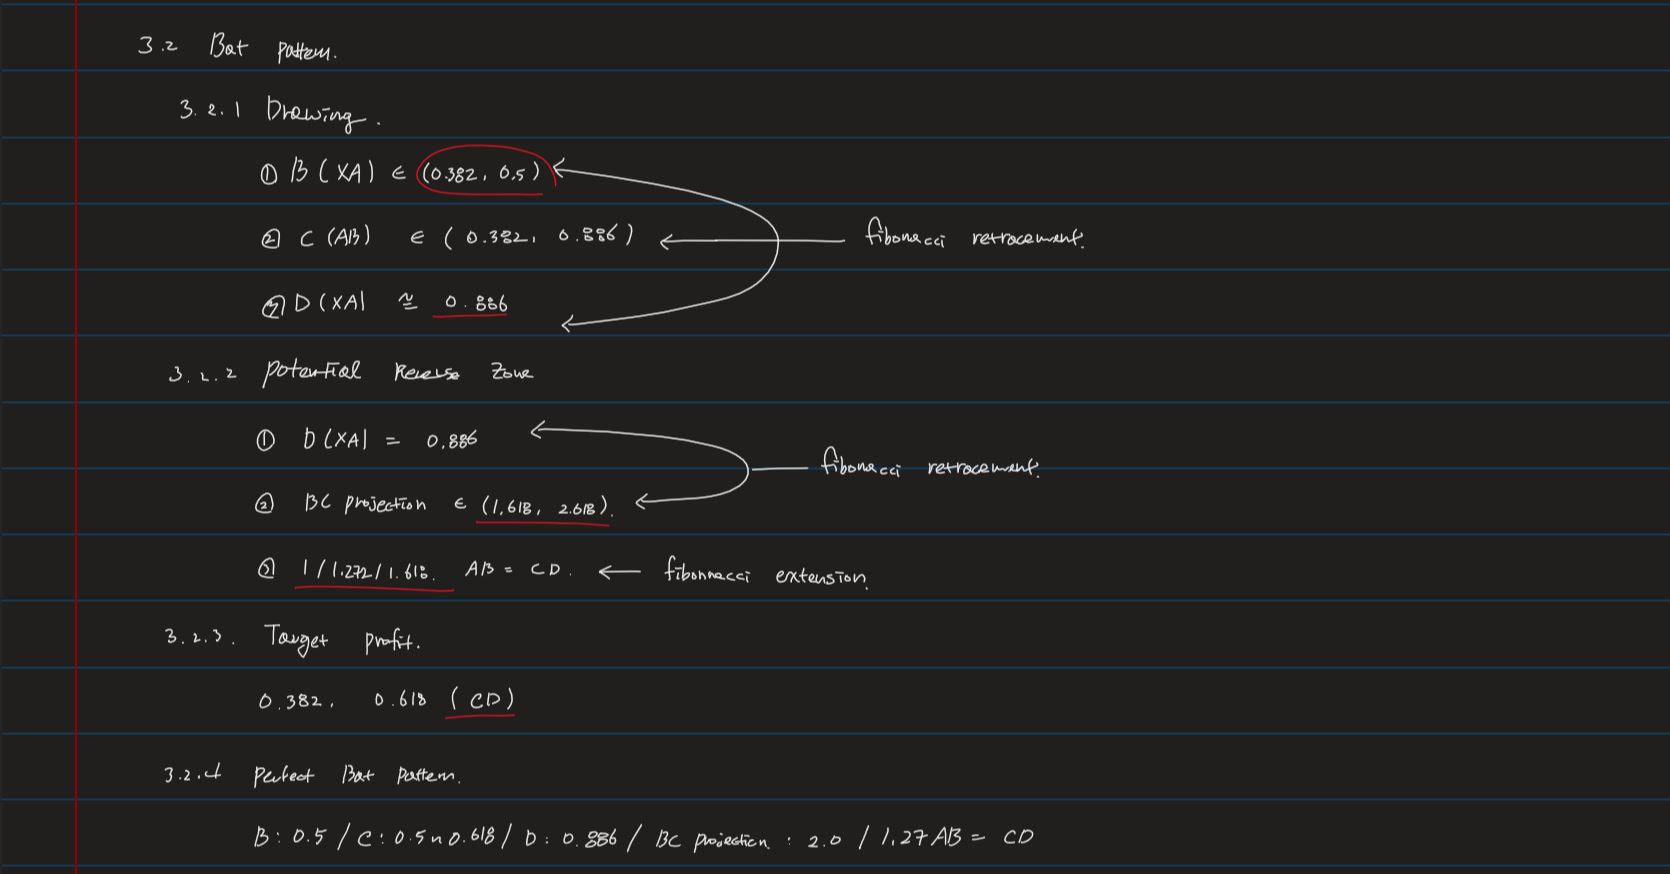 3.2 Bat pattern.
3.2.1 Drawing.
① B (XA) ∈ (0.382, 0.5)
② C (AB) ∈ (0.382, 0.886) ← fibonacci retracement.
③ D (XA) ≈ 0.886
3.2.2 potential Reverse Zone
① D (XA) = 0.886
fibonacci retracement.
② BC projection ∈ (1.618, 2.618).
③ 1 / 1.272 / 1.618. AB = CD. ← fibonnacci extension.
3.2.3. Target profit.
0.382, 0.618 (CD)
3.2.4 Perfect Bat Pattern.
B: 0.5 / C: 0.5 ~ 0.618 / D: 0.886 / BC projection : 2.0 / 1.27 AB = CD